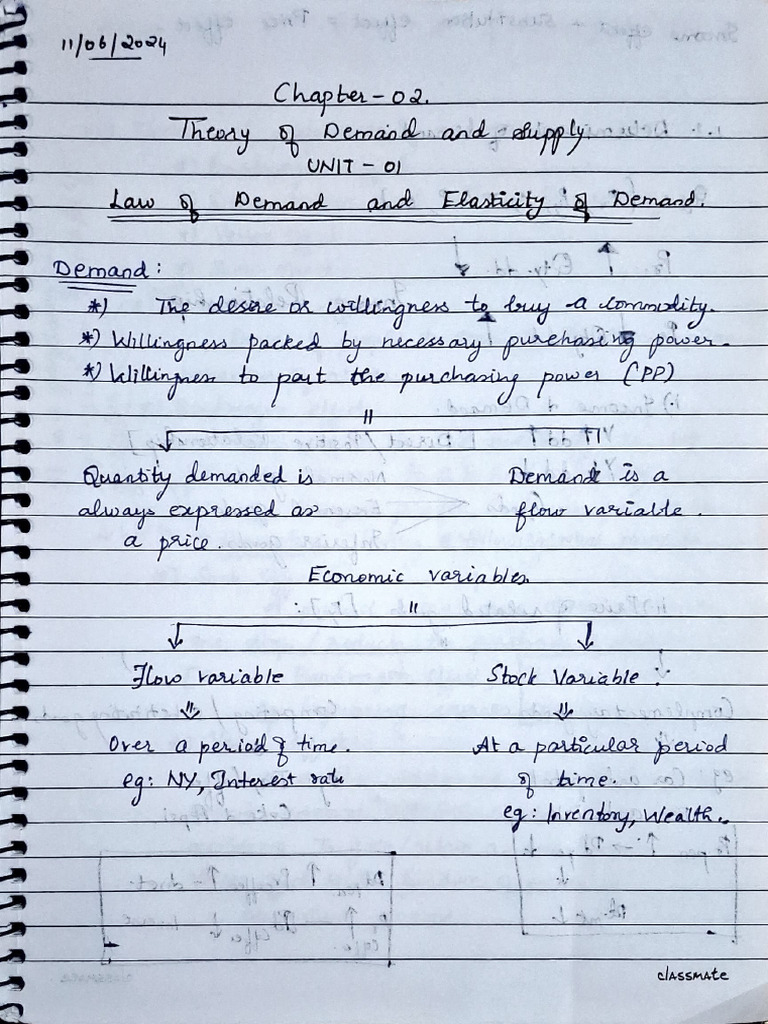 11/06/2024
Chapter-02.
Theory of Demand and Supply.
UNIT-01
Law of Demand and Elasticity of Demand.
Demand:
*) The desire or willingness to buy a commodity.
*) Willingness packed by necessary purchasing power.
*) Willingness to part the purchasing power (PP)
Quantity demanded is
always expressed as
a price.
Demand is a
flow variable.
Economic variables.
Flow variable
Stock Variable
Over a period of time.
eg: NY, Interest rate
At a particular period
of time.
eg: Inventory, Wealth.
classmate